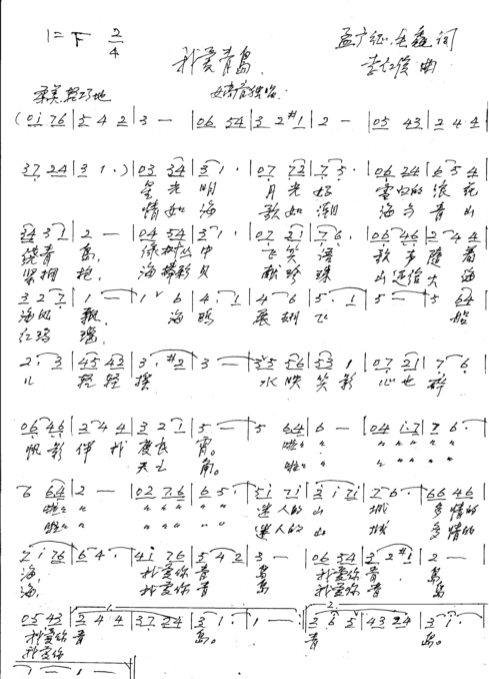 1=F 2/4
我爱青岛
孟广征、毛鑫词
李仁俊 曲
柔美、轻巧地
女高音独唱
(0i 76 | 5 4 2 | 3 — | 06 54 | 3 2 #1 | 2 — | 05 43 | 2 4 4 |
37 24 | 3 1 ·) | 03 34 | 3 1 · | 07 72 | 7 5 · | 06 24 | 6 5 4
星光 明 月光 好 雪白的 浪花
情如 海 歌如 潮 海与 青山
34 3 1 | 2 — | 04 54 | 3 1 · | 07 21 | 7 6 · | 06 46 | 2 4 4
绕青 岛 绿树丛中 飞笑语 歌声随着
紧拥抱 海捧彩贝 献珍珠 山还给大海
3 2 7 | 1 — | 1 6 | 4 · 1 | 4 6 | 5 · 1 | 5 — | 5 64
海风 飘 海鸥 展翅飞 船
红玛 瑙
2 · 3 | 45 43 | 3 · #2 | 3 — | 35 56 | 53 1 | 07 21 | 7 6
儿 轻轻 摇 水映笑影 心也醉
06 46 | 2 4 4 | 3 2 1 | 5 — | 5 64 | 6 — | 04 i 7 | 7 6 ·
帆影伴我度良宵。 啦啦
天上 啦啦
6 64 | 2 — | 02 76 | 6 5 · | 5i 7i | 3 i 7i | 7 6 · | 66 46
啦啦 迷人的 山 城 多情的
啦啦 迷人的 山 城 多情的
2 i 76 | 6 4 · | 4i 76 | 5 4 2 | 3 — | 06 54 | 3 2 #1 | 2 —
海, 我爱你青 岛 我爱你青 岛
海, 我爱你青 岛 我爱你青 岛
05 43 | 2 4 4 | 37 24 | 3 1 · | 1 — | 2 6 5 | 43 24 | 3 i ·
我爱你 青 岛。 青 岛。
我爱你
1 — | 1 —